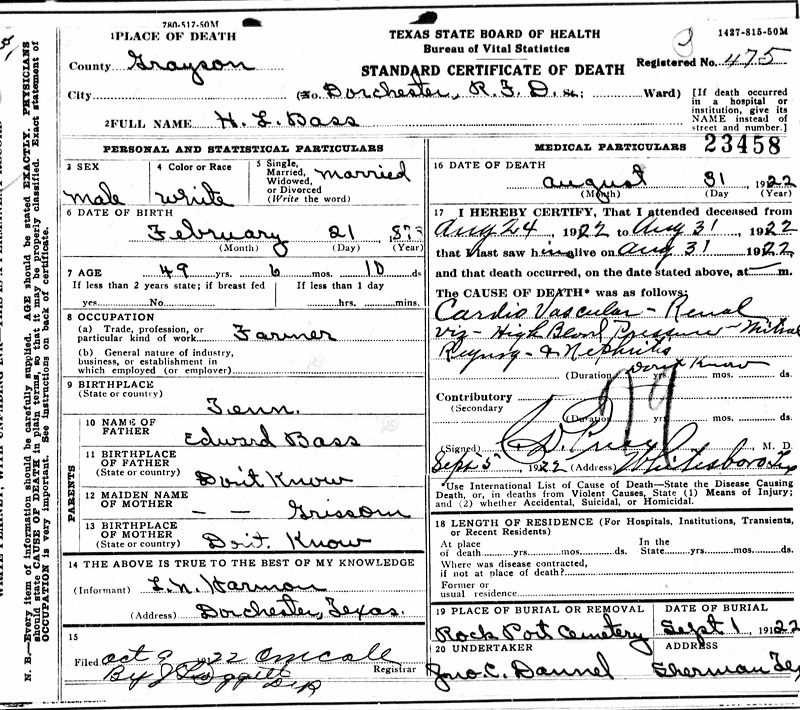 780-517-50M
1PLACE OF DEATH
TEXAS STATE BOARD OF HEALTH
Bureau of Vital Statistics
STANDARD CERTIFICATE OF DEATH
1427-815-50M
Registered No. 475
County Grayson
City (No. Dorchester, R.F.D. St.; Ward)
[If death occurred in a hospital or institution, give its NAME instead of street and number.]
2FULL NAME H. L. Bass
PERSONAL AND STATISTICAL PARTICULARS
3 SEX
male
4 Color or Race
white
5 Single, Married, Widowed, or Divorced (Write the word)
married
6 DATE OF BIRTH
February 21, 1873
(Month) (Day) (Year)
7 AGE 49 yrs. 6 mos. 10 ds
If less than 2 years state; if breast fed
yes No
If less than 1 day
hrs. mins.
8 OCCUPATION
(a) Trade, profession, or
particular kind of work Farmer
(b) General nature of industry,
business, or establishment in
which employed (or employer)
9 BIRTHPLACE
(State or country)
Tenn.
PARENTS
10 NAME OF FATHER
Edward Bass
11 BIRTHPLACE OF FATHER
(State or country) Don't Know
12 MAIDEN NAME OF MOTHER
— — Grissom
13 BIRTHPLACE OF MOTHER
(State or country) Don't Know
14 THE ABOVE IS TRUE TO THE BEST OF MY KNOWLEDGE
(Informant) L. N. Harmon
(Address) Dorchester, Texas.
15
Filed Oct 9 22
Registrar
By Dep
MEDICAL PARTICULARS 23458
16 DATE OF DEATH
August 31 1922
(Month) (Day) (Year)
17 I HEREBY CERTIFY, That I attended deceased from
Aug 24, 1922 to Aug 31, 1922
that I last saw him alive on Aug 31 1922
and that death occurred, on the date stated above, at — m.
The CAUSE OF DEATH* was as follows:
Cardio Vascular - Renal
viz - High Blood Pressure - Mitral
Regurg - & Nephritis
(Duration Don't Know yrs. mos. ds.
Contributory
(Secondary
(Duration yrs. mos. ds.
(Signed) M. D.
Sept 5 1922 (Address) Whitesboro Tex
*Use International List of Cause of Death—State the Disease Causing
Death, or, in deaths from Violent Causes, State (1) Means of Injury;
and (2) whether Accidental, Suicidal, or Homicidal.
18 LENGTH OF RESIDENCE (For Hospitals, Institutions, Transients,
or Recent Residents)
At place of death yrs. mos. ds.
In the State yrs. mos. ds.
Where was disease contracted,
if not at place of death?
Former or
usual residence
19 PLACE OF BURIAL OR REMOVAL
Rock Port Cemetery
DATE OF BURIAL
Sept 1, 1922
20 UNDERTAKER
Jno. C. Dannel
ADDRESS
Sherman Tex
N. B.—Every item of information should be carefully supplied. AGE should be stated EXACTLY. PHYSICIANS
should state CAUSE OF DEATH in plain terms, so that it may be properly classified. Exact statement of
OCCUPATION is very important. See instructions on back of certificate.